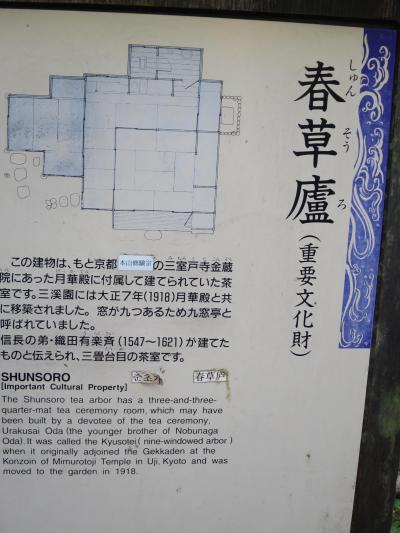 春草廬
しゅん そう ろ
(重要文化財)
この建物は、もと京都本山修験宗の三室戸寺金蔵
院にあった月華殿に付属して建てられていた茶
室です。三溪園には大正7年(1918)月華殿と共
に移築されました。窓が九つあるため九窓亭と
呼ばれていました。
信長の弟・織田有楽斉(1547〜1621)が建てた
ものと伝えられ、三畳台目の茶室です。
SHUNSORO
春草庐
[Important Cultural Property]
The Shunsoro tea arbor has a three-and-three-
quarter-mat tea ceremony room, which may have
been built by a devotee of the tea ceremony,
Urakusai Oda (the younger brother of Nobunaga
Oda). It was called the Kyusotei (nine-windowed arbor)
when it originally adjoined the Gekkaden at the
Konzoin of Mimurotoji Temple in Uji, Kyoto and was
moved to the garden in 1918.